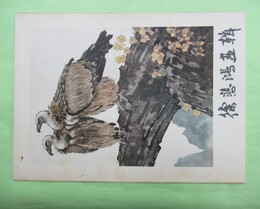 徐悲鸿画辑